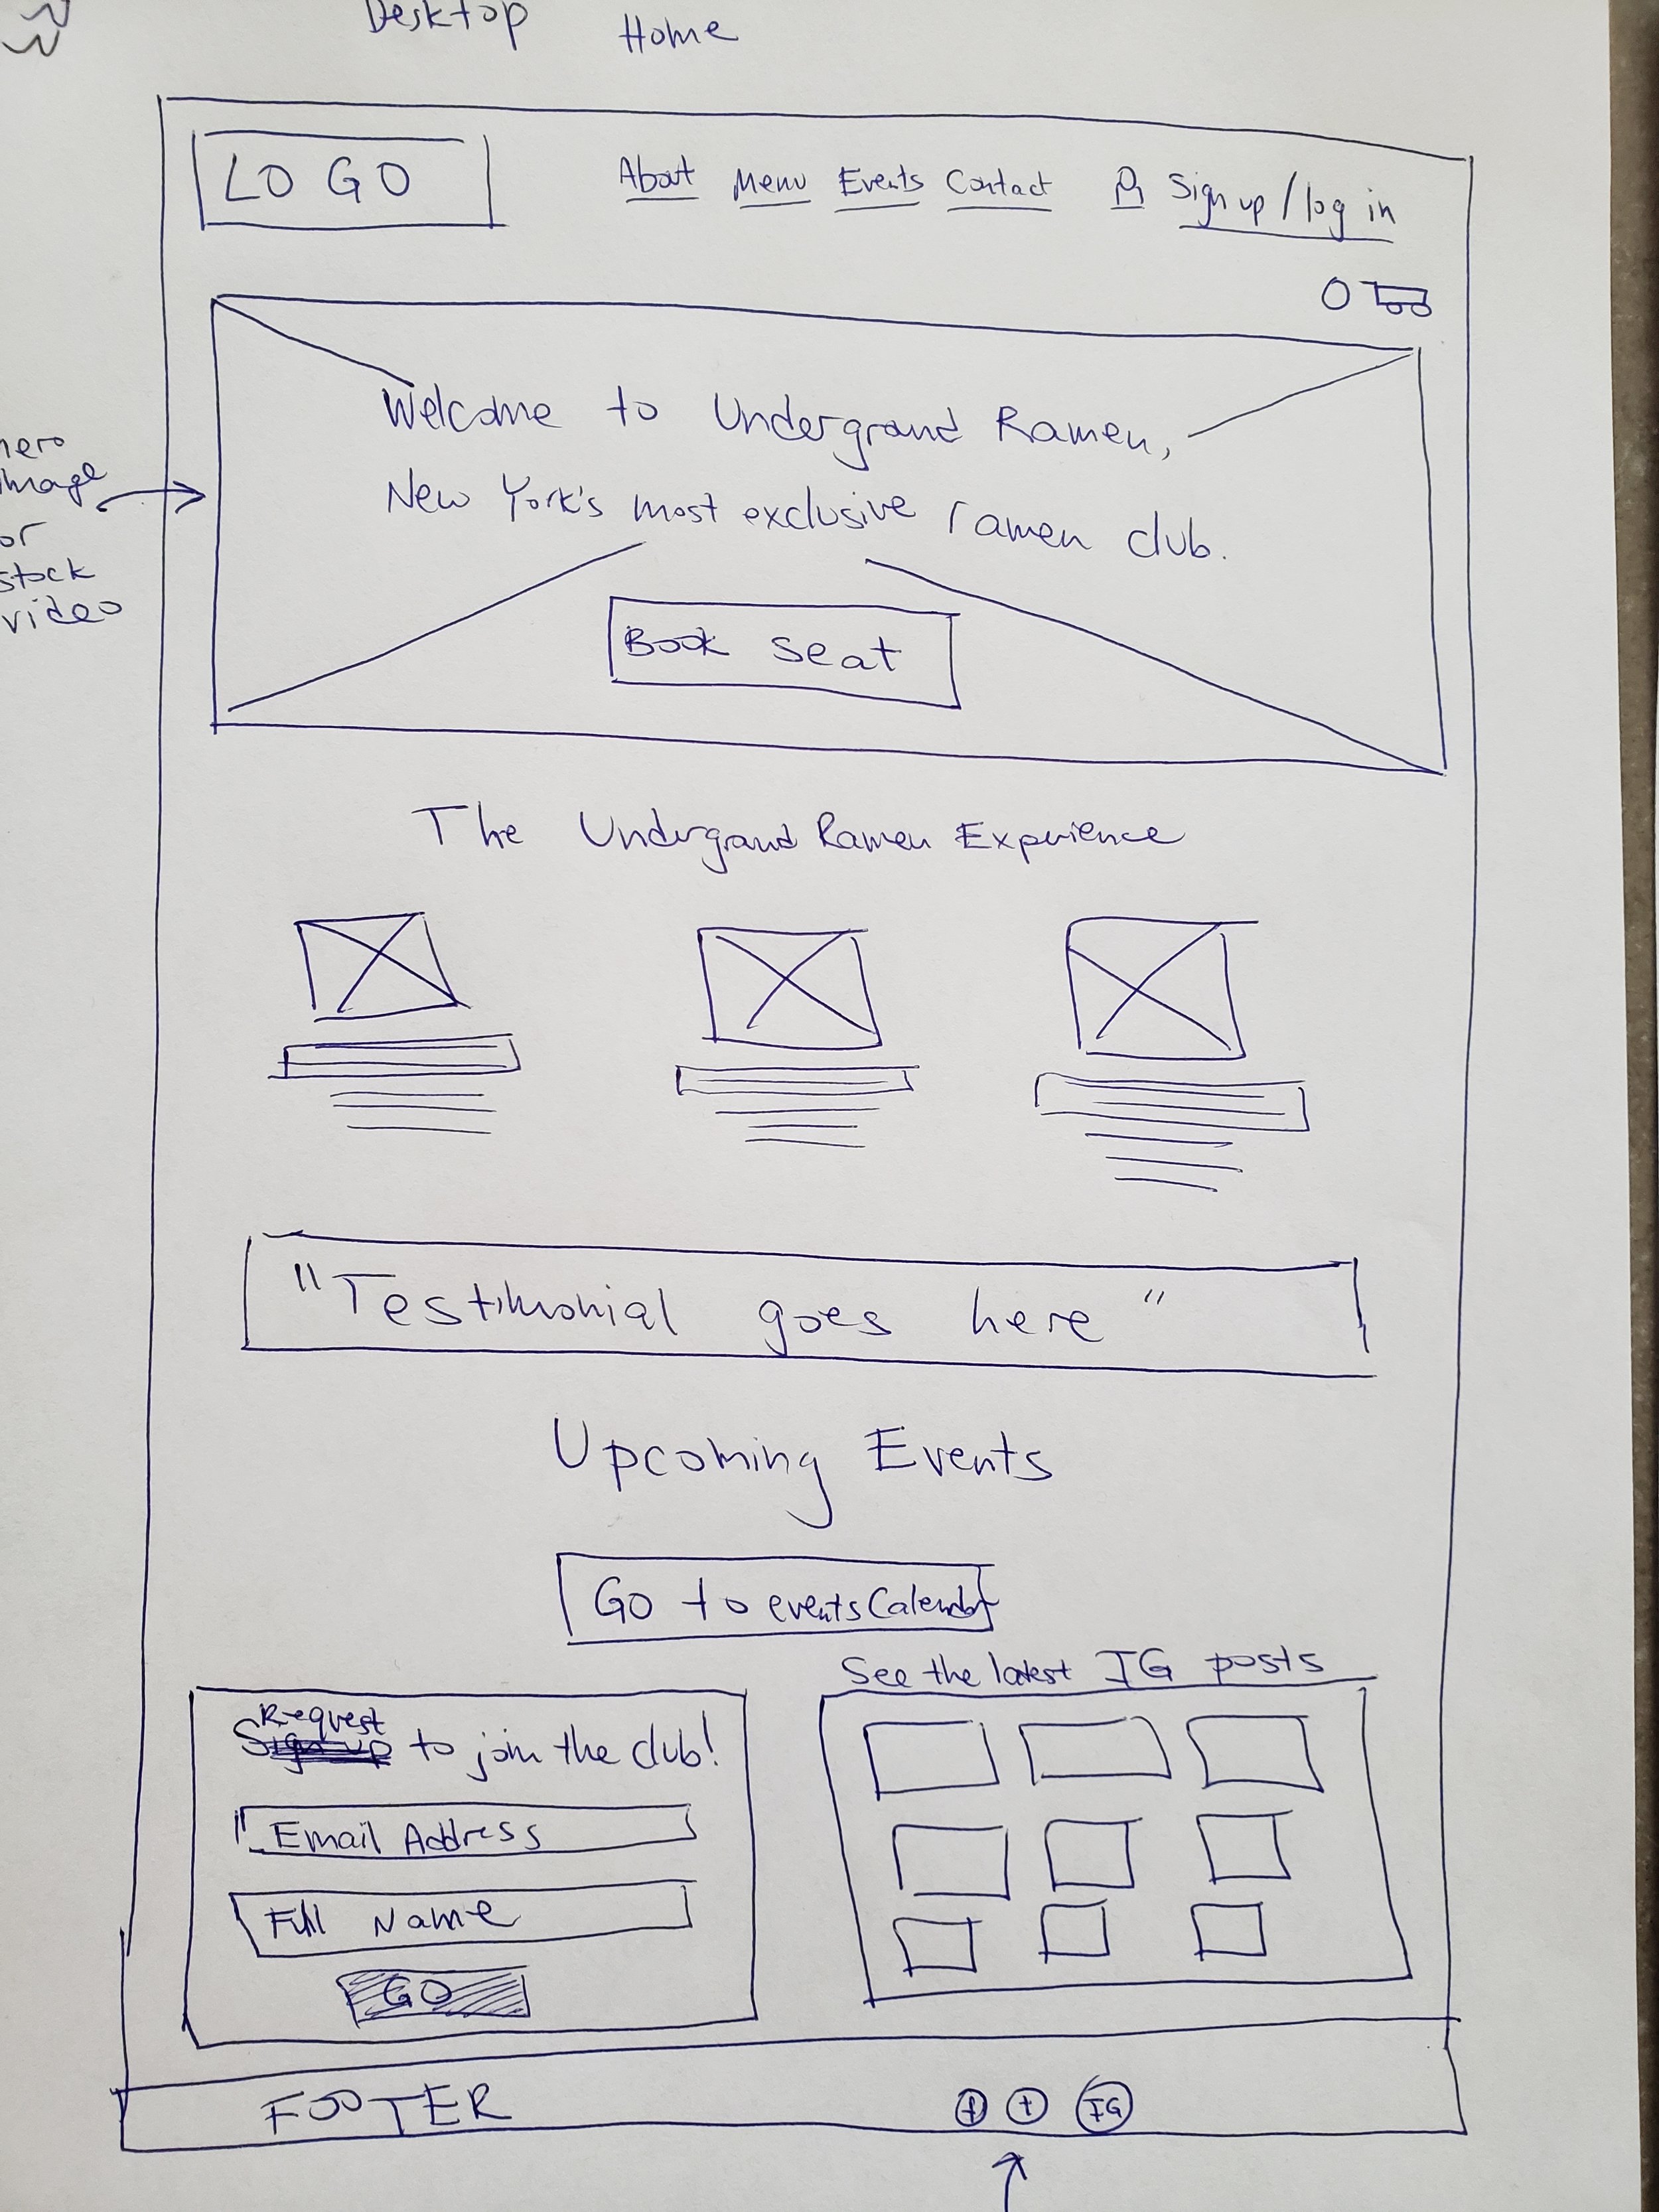 Desktop Home
LOGO
About Menu Events Contact Sign up / log in
0
Welcome to Undergrand Ramen,
New York's most exclusive ramen club.
hero
image
or
stock
video
Book seat
The Undergrand Ramen Experience
"Testimonial goes here"
Upcoming Events
Go to events Calendar
See the latest IG posts
Request
Sign up to join the club!
Email Address
Full Name
GO
FOOTER
IG